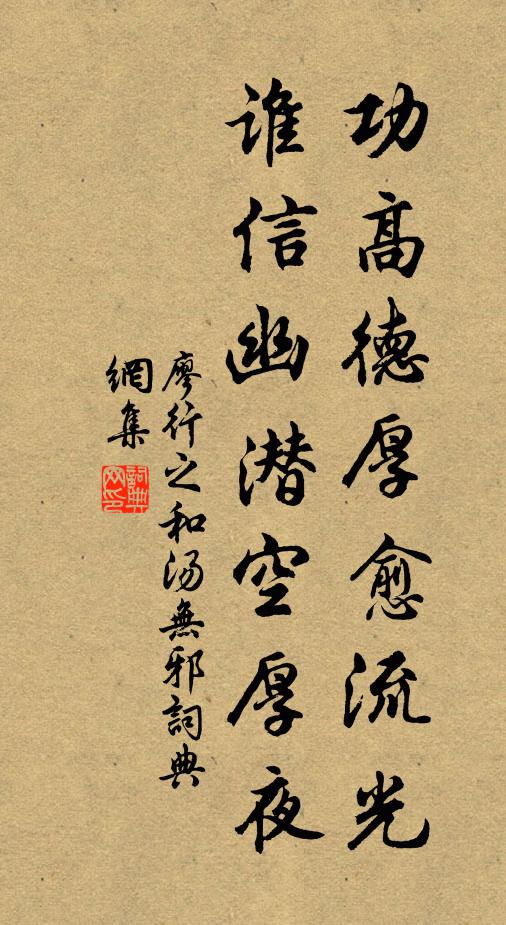 功高德厚愈流光
谁信幽潜空厚夜
廖行之和汤無邪詞典
網集
詞典
网印